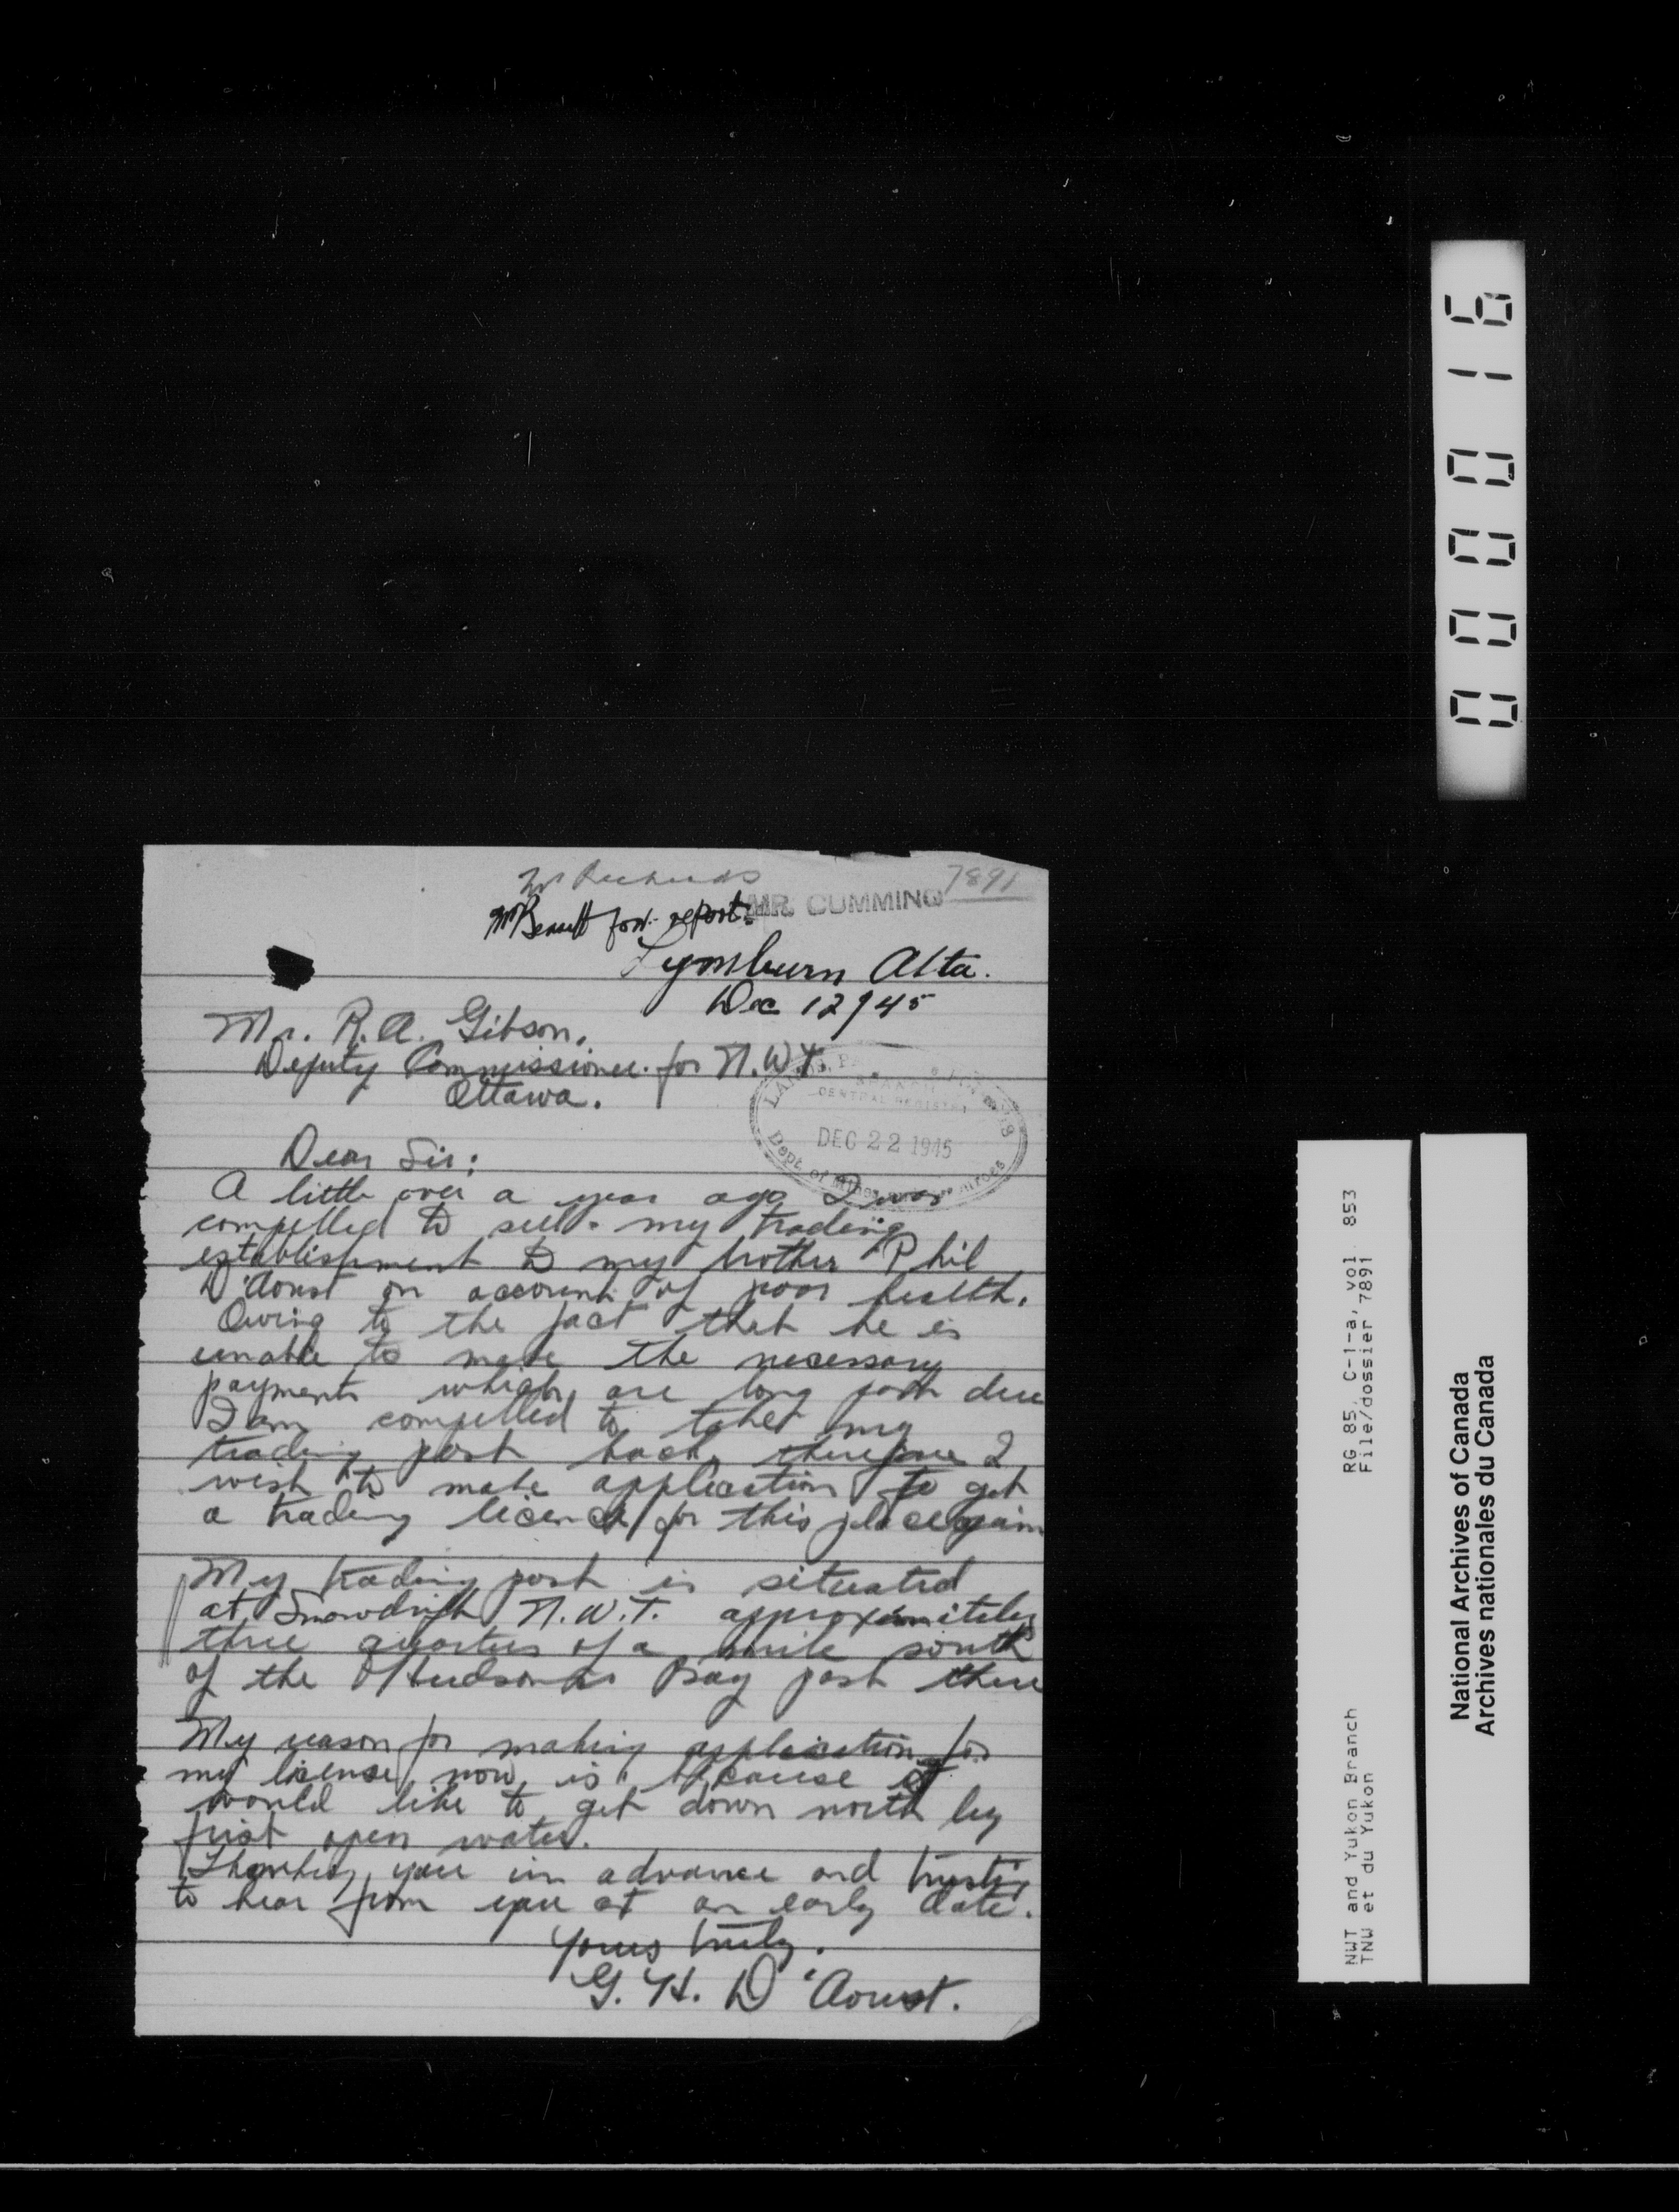 Mr Richards
7891
MR. CUMMING
Mr Bennett for report.
Lymburn Alta.
Dec 12/45
Mr. R. A. Gibson,
Deputy Commissioner for N.W.T.
Ottawa.
CENTRAL REGISTRY
DEC 22 1945
Dept. of Mines
Dear Sir:
A little over a year ago I was
compelled to sell my trading
establishment to my brother Phil
D'Aoust on account of poor health.
Owing to the fact that he is
unable to make the necessary
payments which are long past due
I am compelled to take my
trading post back, therefore I
wish to make application to get
a trading licence for this place again
My trading post is situated
at Snowdrift N.W.T. approximitely
three quarters of a mile south
of the Hudson's Bay post there
My reason for making application for
my license now is because I
would like to get down north by
first open water.
Thanking you in advance and trusting
to hear from you at an early date.
Yours truly.
G. H. D'Aoust.
000016
RG 85, C-1-a, vol 853
File/dossier 7891
NWT and Yukon Branch
TNW et du Yukon
National Archives of Canada
Archives nationales du Canada